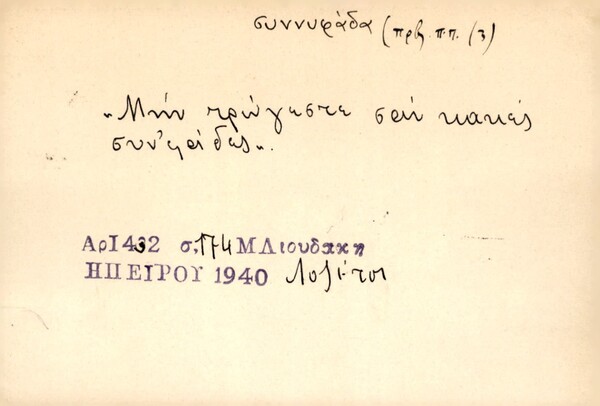 συννυφάδα (πρβ. π.π. (3)
„Μήν τρώγεστε σάν κακές
συν'φάδες".
Αρ1432 σ. 174 Μ Λιουδακη
ΗΠΕΙΡΟΥ 1940